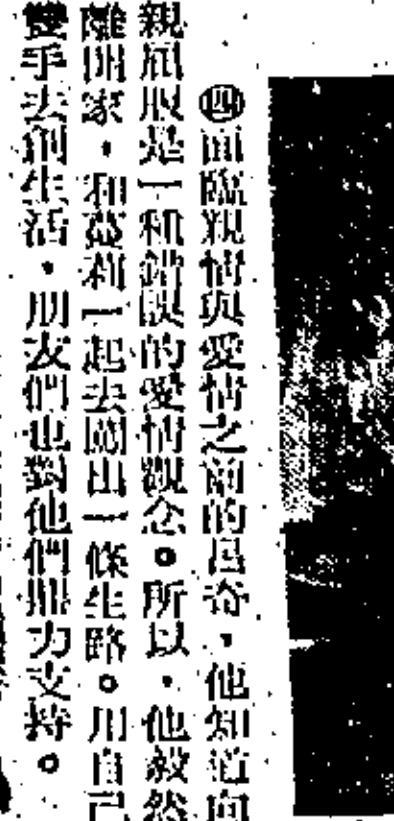 ㊃面臨親情與愛情之前的昌奇，他知道向
親屈服是一種錯誤的愛情觀念。所以，他毅然
離開家，和亞莉一起去闖出一條生路。用自己
雙手去創生活，朋友們也對他們鼎力支持。